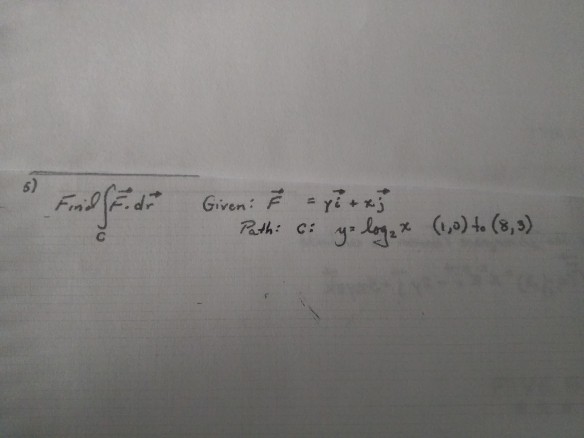 5) Find ∫_C F⃗ · dr⃗ Given: F⃗ = yi⃗ + xj⃗
Path: C: y = log₂ x (1,0) to (8,3)